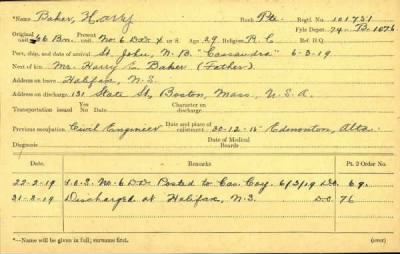 *Name Baker, Harry Rank Pte. Regtl. No. 101751
Original unit 66 Bn. Present unit No 6 D.D. x or S Age 29 Religion R.C. Fyle Depot 74- B- 1076 Ref. H.Q.
Port, ship, and date of arrival St. John, N.B. "Cassandra" 6-3-19
Next of kin Mr. Harry E. Baker (Father)
Address on leave Halifax, N.S.
Address on discharge 131 State St, Boston, Mass, U.S.A.
Transportation issued Yes No Date Character on discharge
Previous occupation Civil Engineer Date and place of enlistment 30-12-15 Edmonton, Alta.
Diagnosis Date of Medical Boards
Date. Remarks Pt. 2 Order No.
22-2-19 T.O.S. No. 6 D.D. Posted to Cas. Coy. 6/3/19 D.O. 69.
31-3-19 Discharged at Halifax, N.S. D.O. 76
*Name will be given in full; surname first. (over)